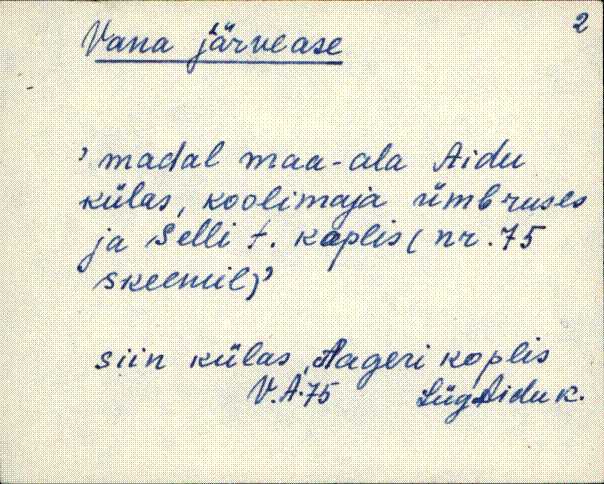 2
Vana järvease
' madal maa-ala Aidu
külas, koolimaja ümbruses
ja Selli t. koplis (nr. 75
skeemil)'
siin külas, Aageri koplis
V.A.75 Lüg Aidu k.